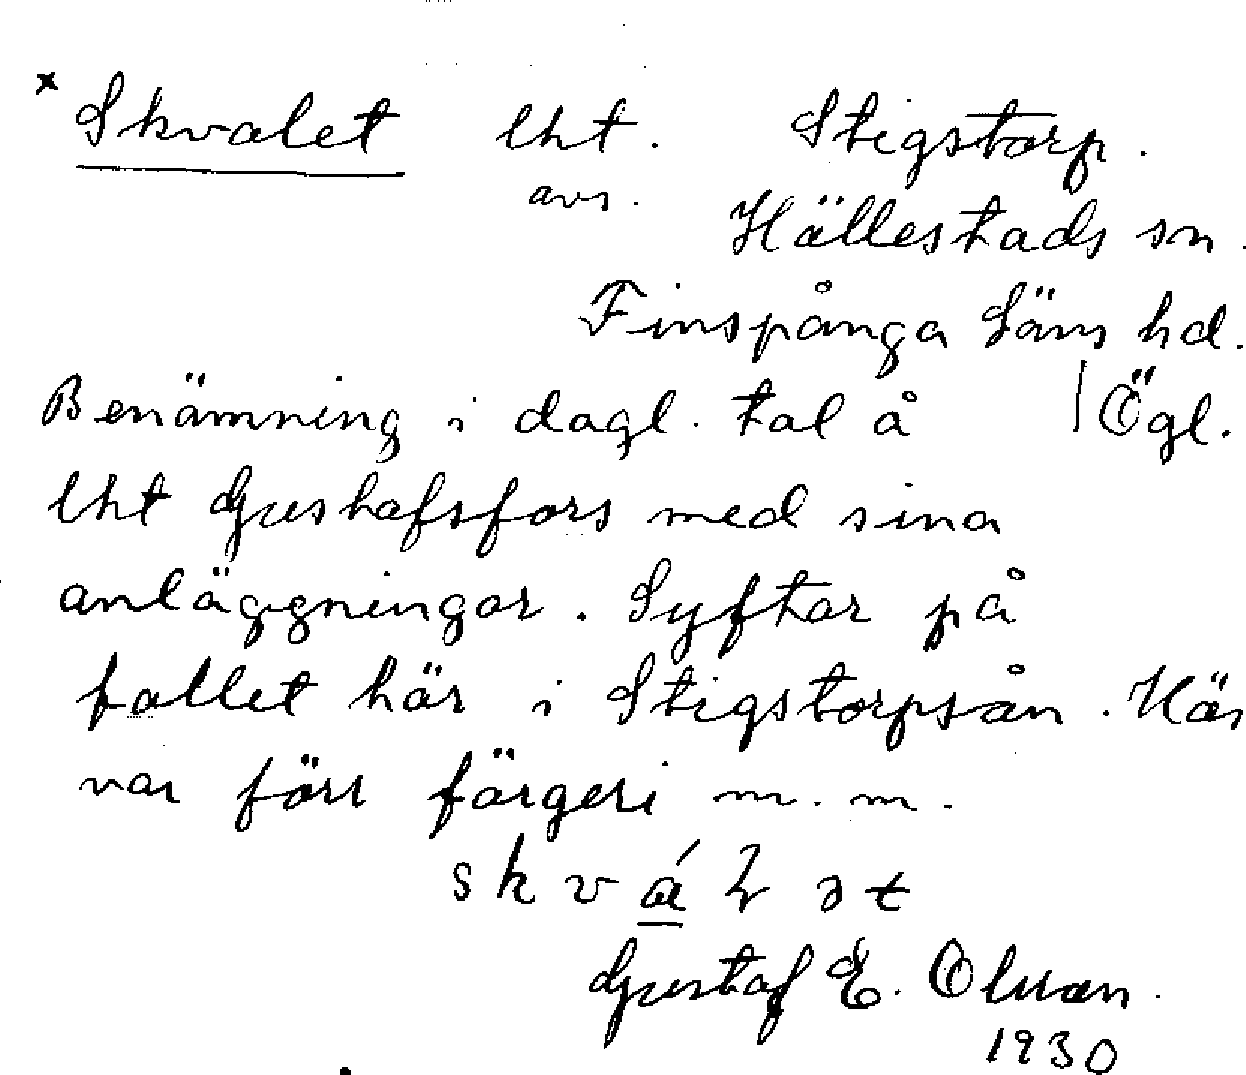 x Skvalet lht. Stigstorp.
avs. Hällestads sn.
Finspånga läns hd.
Benämning i dagl. tal å | Ögl.
lht Gustafsfors med sina
anläggningar. Syftar på
fallet här i Stigstorpsån. Här
var förr färgeri m.m.
skvá̲lət
Gustaf E. Olsson.
1930